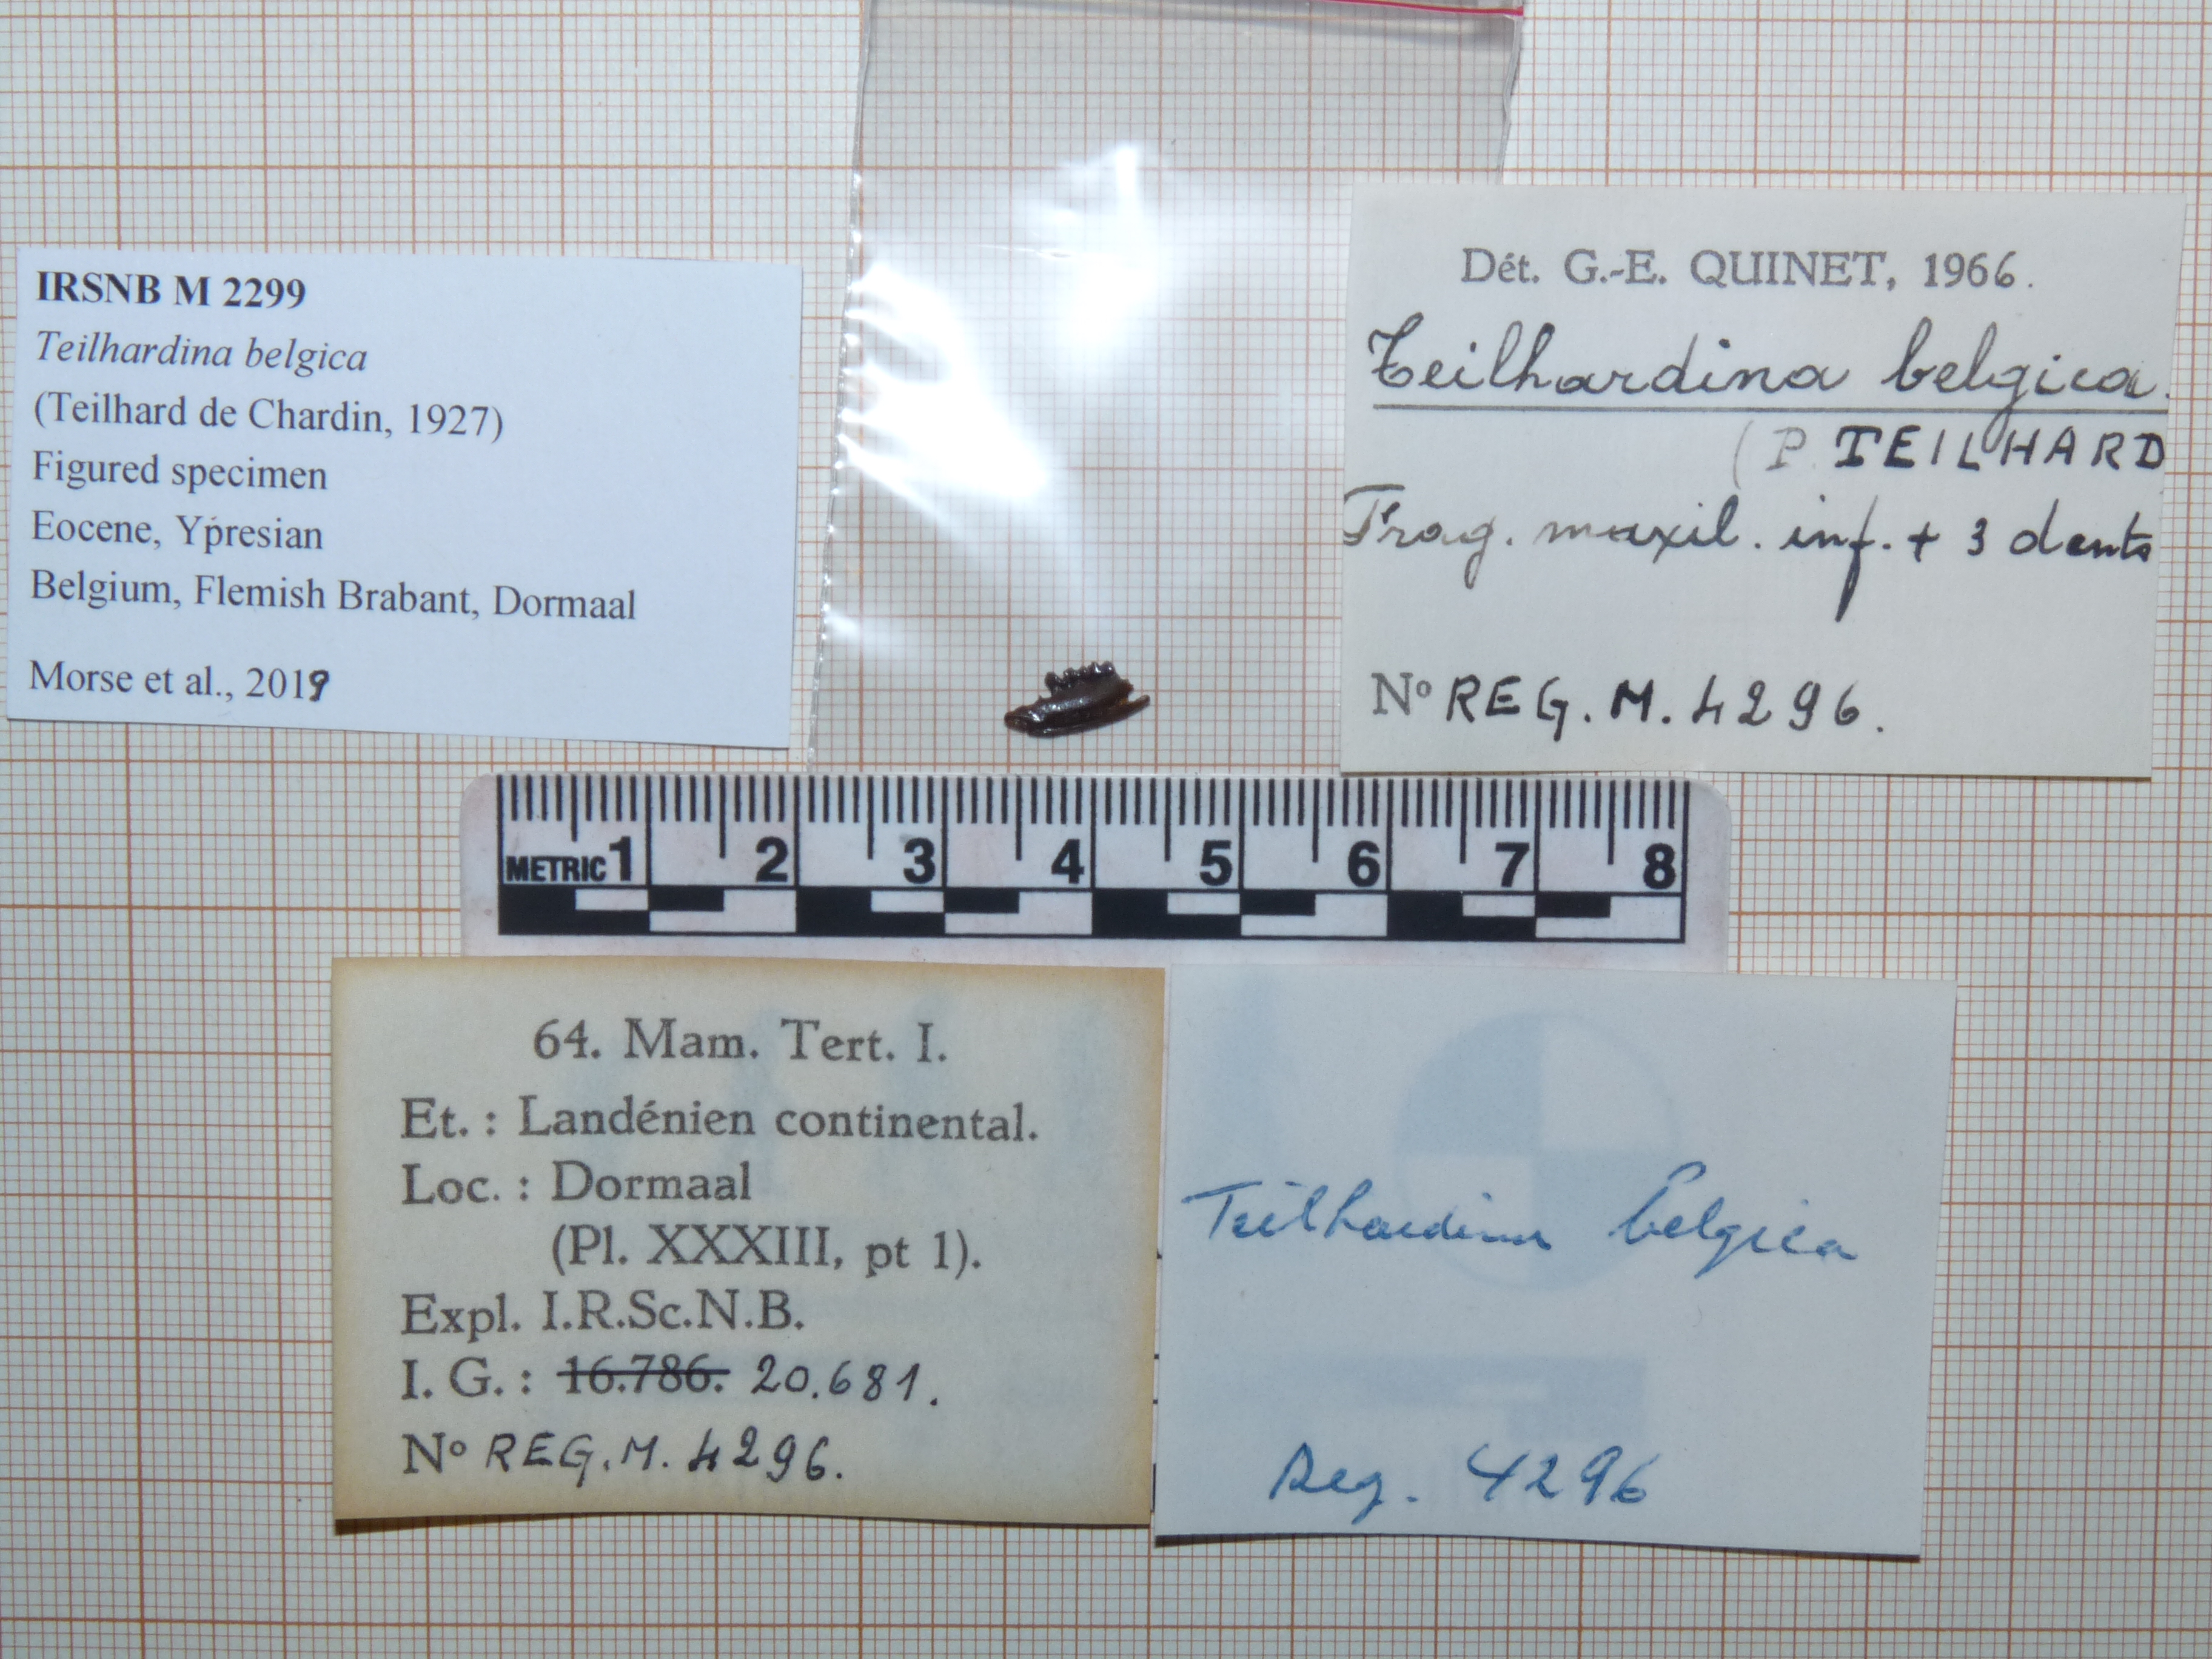 IRSNB M 2299
Teilhardina belgica
(Teilhard de Chardin, 1927)
Figured specimen
Eocene, Ypresian
Belgium, Flemish Brabant, Dormaal
Morse et al., 2019
Dét. G.-E. QUINET, 1966.
Teilhardina belgica.
(P. TEILHARD
Frag. maxil. inf. + 3 dents
No REG. M. 4296.
METRIC 1 2 3 4 5 6 7 8
64. Mam. Tert. I.
Et. : Landénien continental.
Loc. : Dormaal
(Pl. XXXIII, pt 1).
Expl. I.R.Sc.N.B.
I. G. : 16.786. 20.681.
No REG. M. 4296.
Teilhardina belgica
Reg. 4296